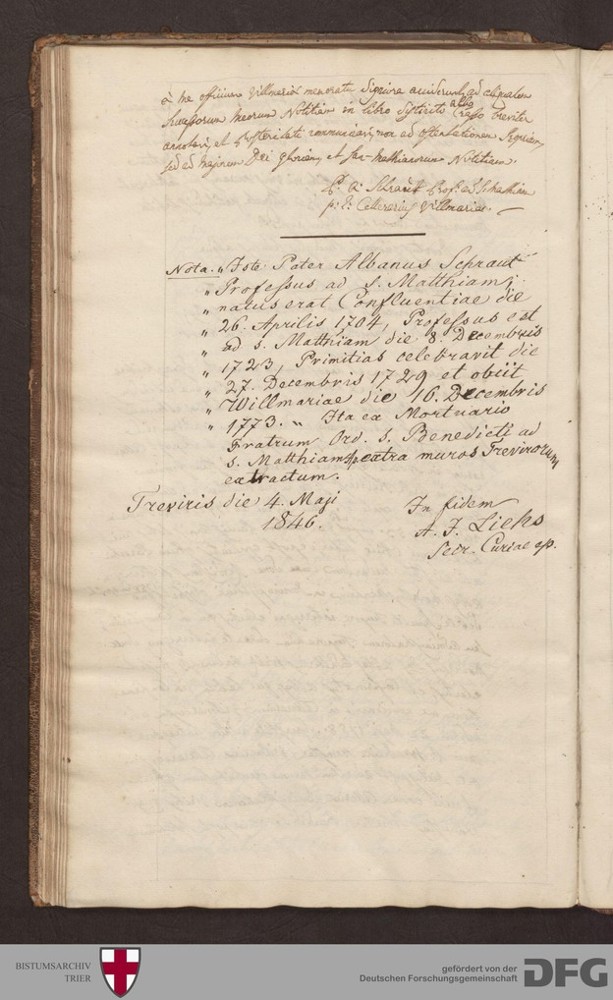 à me officium Villmariæ
successorum meorum Notitiam in libro distincto breviter
annotari, et posteritati communicari, non ad ostentationem propriam,
sed ad majorem Dei gloriam, et Notitiam.
P. A. Schraut Prof. ad S. Mathiam
p. t. Cellerarius Villmariae.
Nota. „Iste Pater Albanus Schraut
„ Professus ad S. Matthiam,
„ natus erat Confluentiae die
„ 26. Aprilis 1704, Professus est
„ ad S. Matthiam die 8. Decembris
„ 1723, Primitias celebravit die
„ 27. Decembris 1729 et obiit
„ Willmariae die 16. Decembris
„ 1773. “ Ita ex Mortuario
Fratrum Ord. S. Benedicti ad
S. Matthiam extra muros Trevirorum
extractum.
Treviris die 4. Maji
1846.
In fidem
A. J. Liehs
Secr. Curiae ep.
BISTUMSARCHIV
TRIER
gefördert von der
Deutschen Forschungsgemeinschaft
DFG